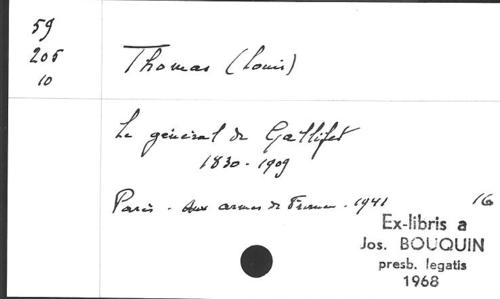 59
205
10
Thomas (Louis)
Le général de Galliffet
1830-1909
Paris - Aux armes de France - 1941
16
Ex-libris a
Jos. BOUQUIN
presb. legatis
1968